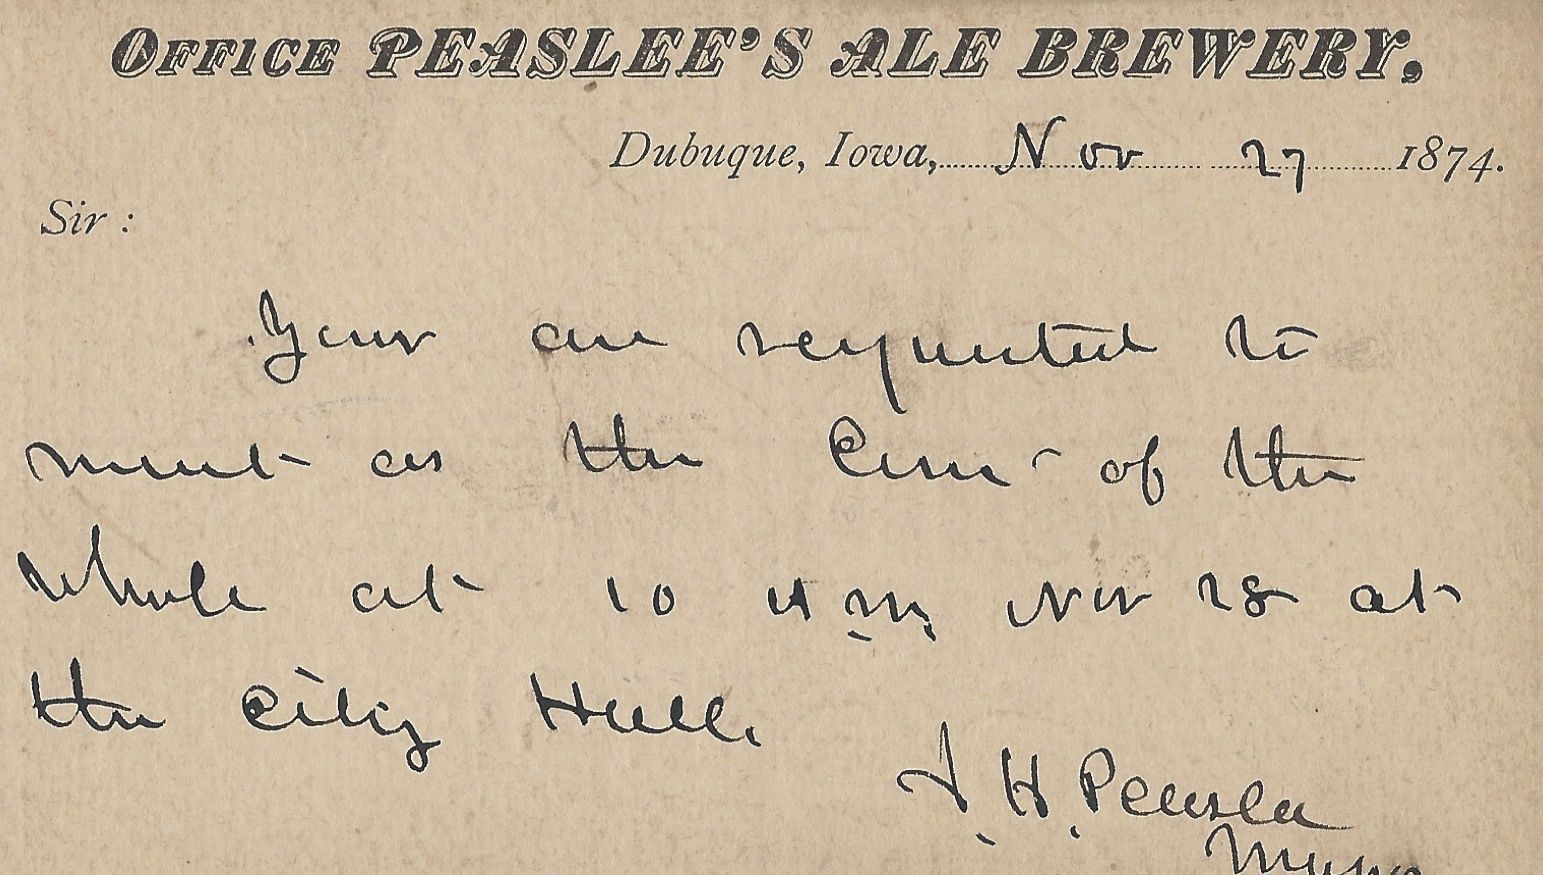 OFFICE PEASLEE'S ALE BREWERY,
Dubuque, Iowa, Nov 27 1874.
Sir :
Your are requested to
meet as the Com of the
whole at 10 A.M. Nov 28 at
the City Hall.
J. H. Peaslee
Mayor